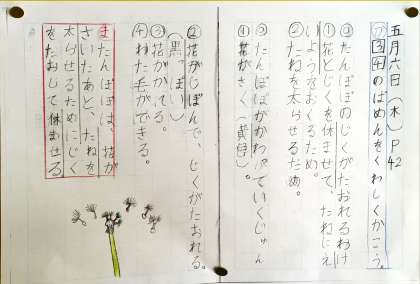 五月六日(木)P42
㋐③④のばめんをくわしくかこう。
②たんぽぽのじくがたおれるわけ
①花とじくを休ませて、たねにえ
いようをおくるため。
②たねを太らせるため。
③たんぽぽがかわっていくじゅん
①花がさく(黄色)。
②花がしぼんで、じくがたおれる。
(黒っぽい)
③花がかれる。
④わた毛ができる。
ま たんぽぽは、花が
さいたあと、たねを
太らせるためにじく
をたおして休ませる